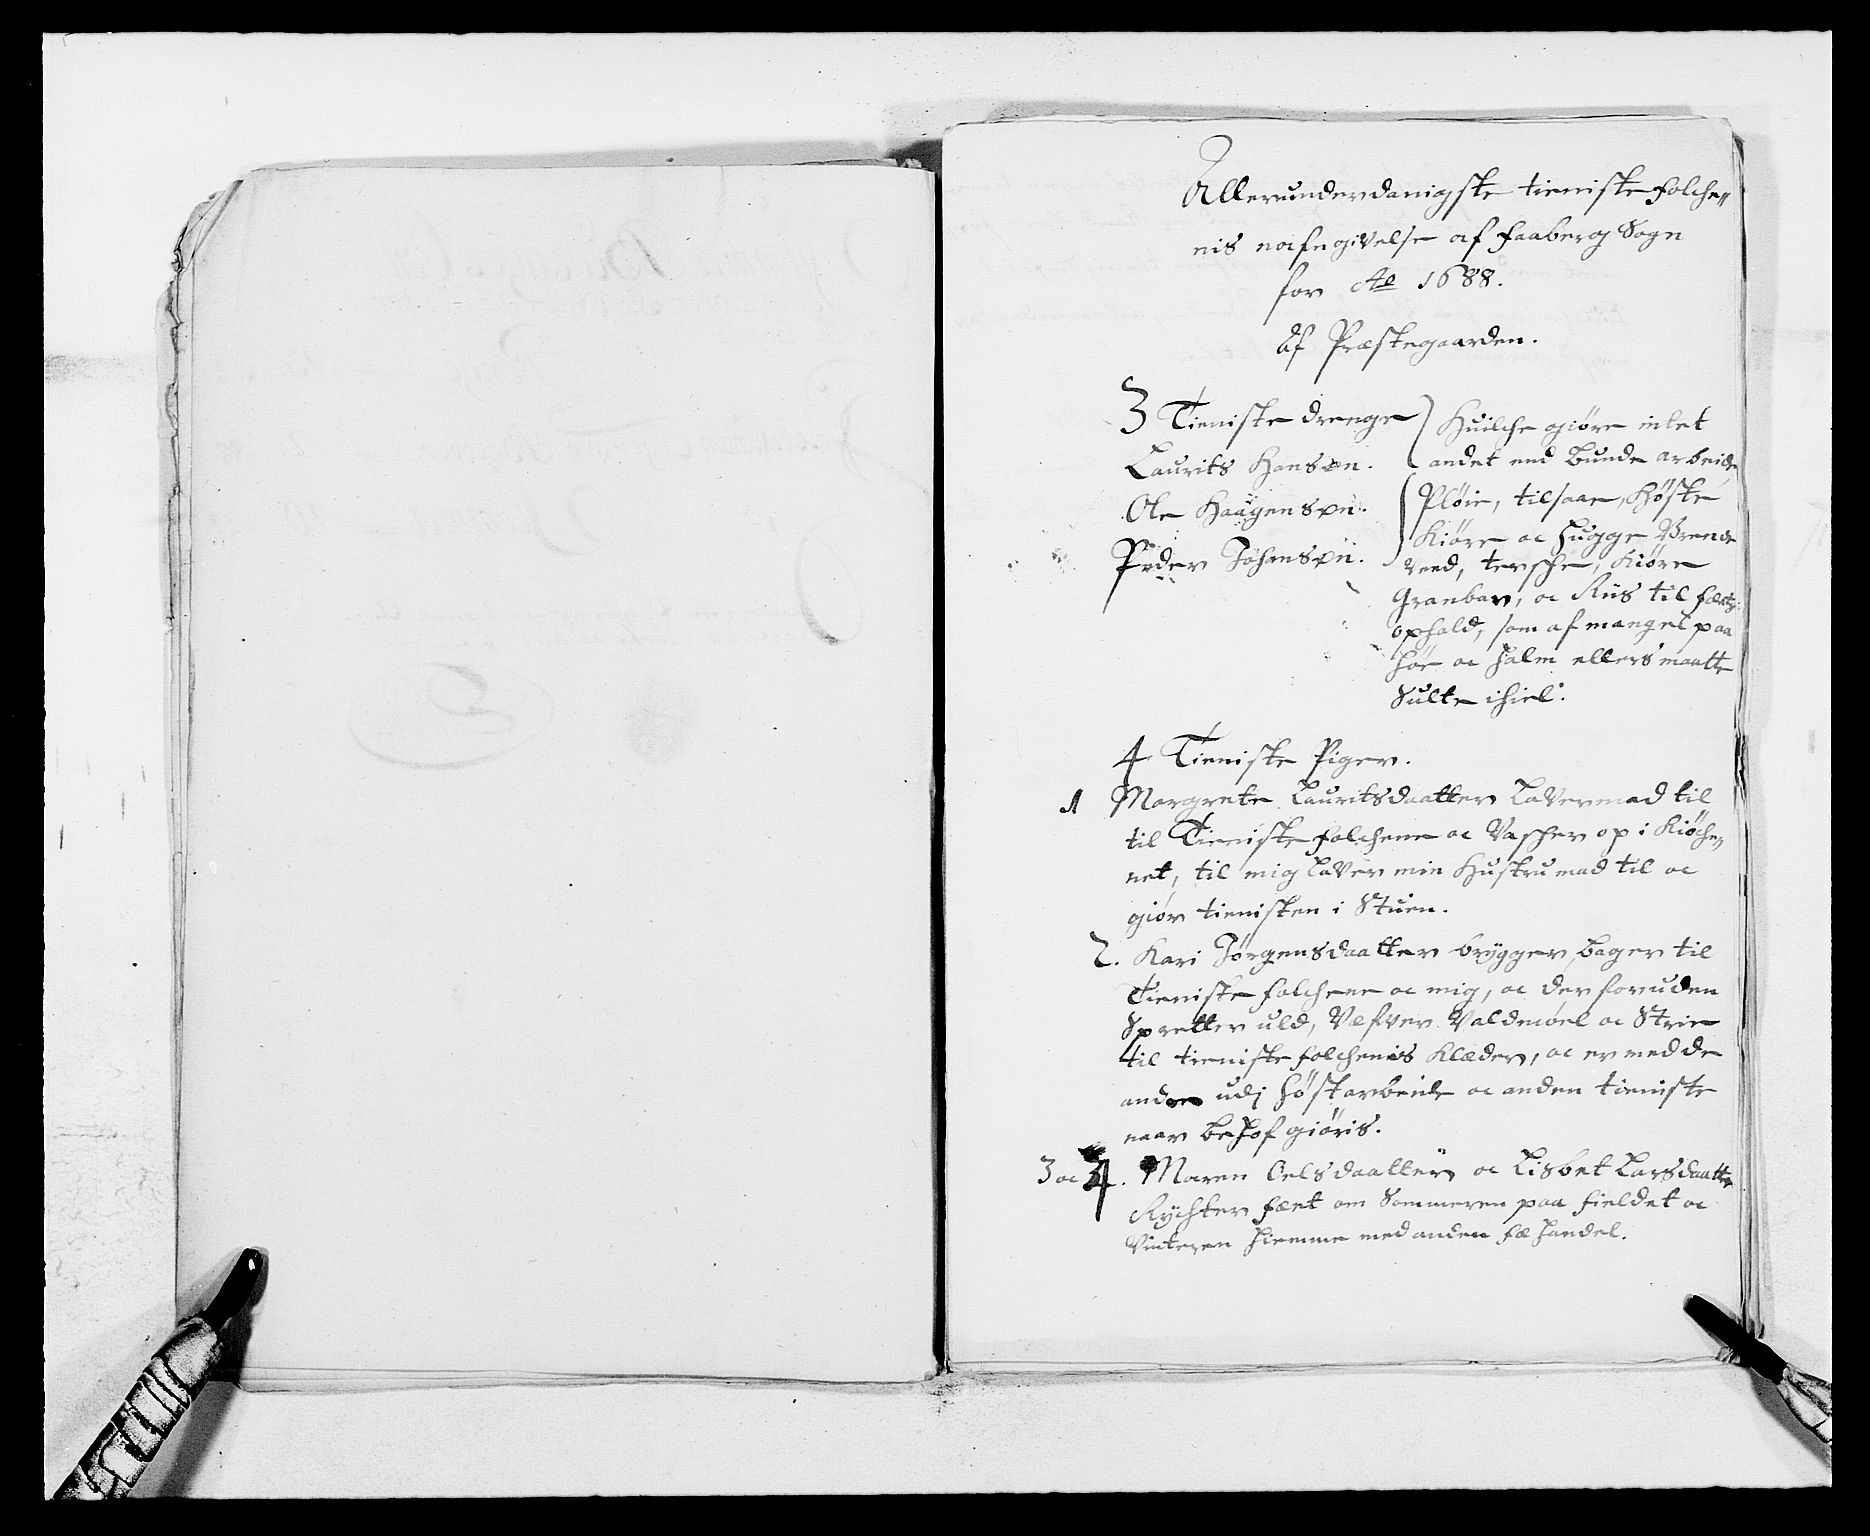 Allerunderdanigste tieniste folche„
nis nafngivelse af Faaberg Sogn
for Ao 1688.
Af Præstegaarden.
3 Tieniste drenge
Laurits Hansøn.
Ole Haagensøn.
Peder Johansøn.
Huilche giøre intet
andet end bunde arbeide
Pløie, tilsaae, Høste
Kiøre oc hugge Brende
Veed, tersche, Kiøre
Granbar, oc Riis til fæets
ophald, som af mangel paa
høe oc halm ellers maatte
Sulte ihiel.
4 Tieniste Piger.
1 Margrete Lauritsdaatter Laver mad til
til Tieniste folchene oc Vascher op i Kiøche„
net, til mig laver min Hustru mad til oc
giør tienisten i Stuen.
2. Kari Jørgensdaatter brygger, bager til
Tieniste folchene oc mig, oc der foruden
Spretter uld, Vefver Valdmøel oc Strie
til tieniste folchenis Klæder, oc er med de
andre udj høstarbeide oc anden tieniste
naar behof giøris.
3 oc 4. Maren Oelsdaatter oc Lisbet Larsdaatter
Rychter fæet om Sommeren paa fieldet oc
Vinteren hiemme med anden fæ handel.